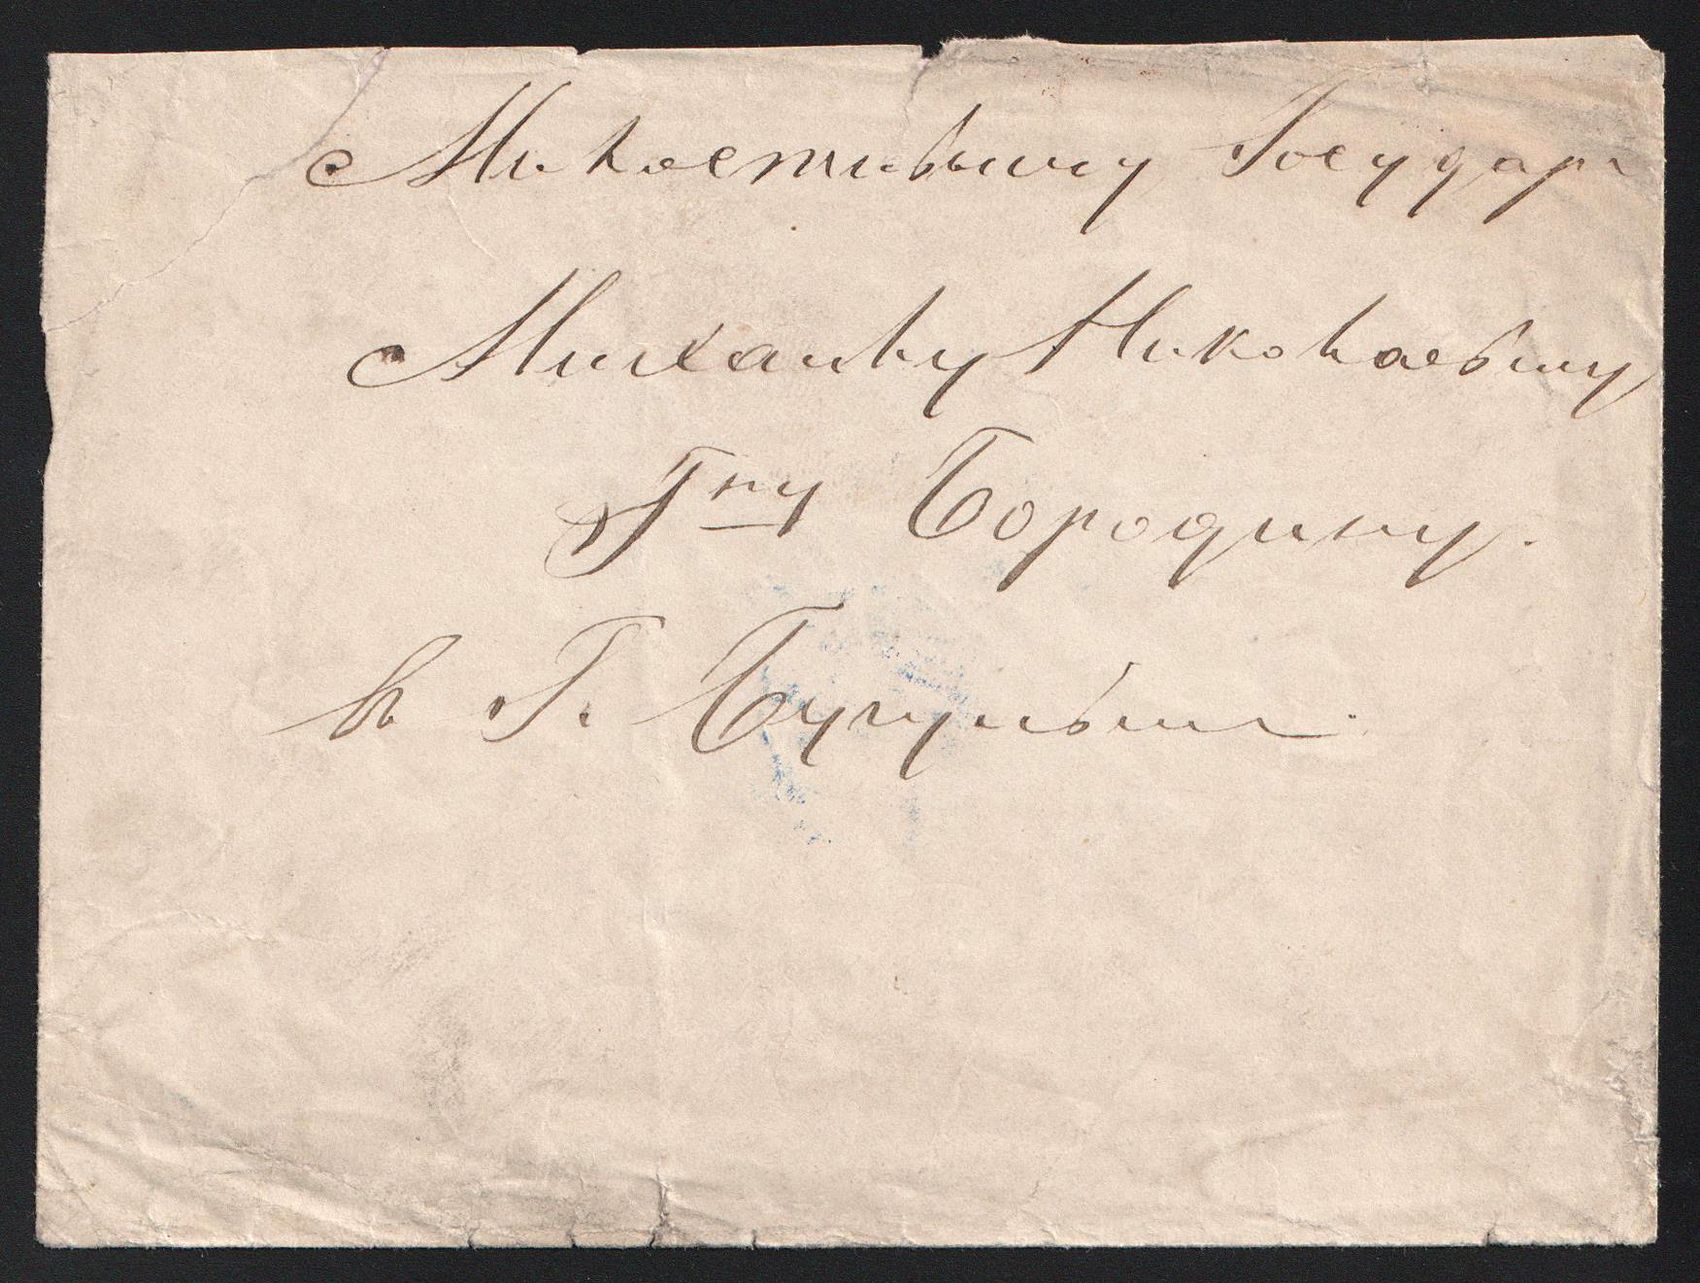 Милостивому Государ
Михаилу Николаевичу
Г-ну Бородину.
в Г. Бугульме.